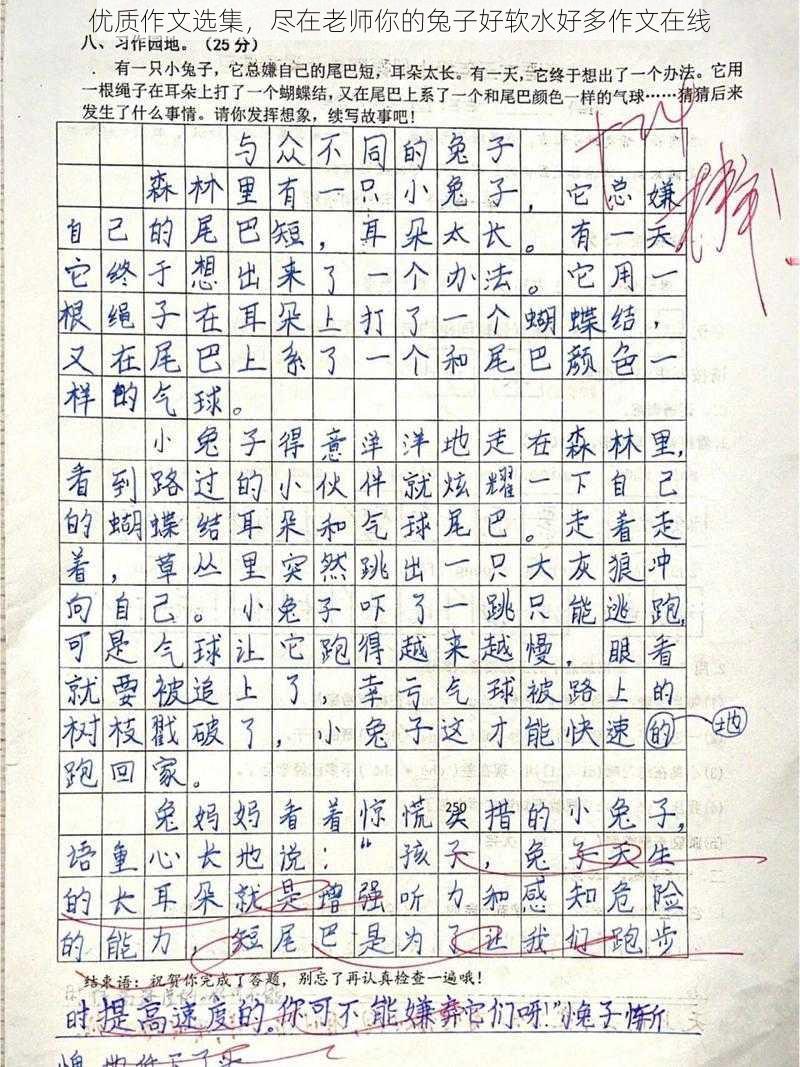 优质作文选集，尽在老师你的兔子好软水好多作文在线
八、习作园地。（25分）
有一只小兔子，它总嫌自己的尾巴短，耳朵太长。有一天，它终于想出了一个办法。它用
一根绳子在耳朵上打了一个蝴蝶结，又在尾巴上系了一个和尾巴颜色一样的气球……猜猜后来
发生了什么事情。请你发挥想象，续写故事吧！
与众不同的兔子
森林里有一只小兔子，它总嫌
自己的尾巴短，耳朵太长。有一天
它终于想出来了一个办法。它用一
根绳子在耳朵上打了一个蝴蝶结，
又在尾巴上系了一个和尾巴颜色一
样的气球。
小兔子得意洋洋地走在森林里，
看到路过的小伙伴就炫耀一下自己
的蝴蝶结耳朵和气球尾巴。走着走
着，草丛里突然跳出一只大灰狼冲
向自己。小兔子吓了一跳只能逃跑，
可是气球让它跑得越来越慢，眼看
就要被追上了，幸亏气球被路上的
树枝戳破了，小兔子这才能快速的 地
跑回家。
250
兔妈妈看着惊慌失措的小兔子，
语重心长地说：“孩子，兔子天生
的长耳朵就是增强听力和感知危险
的能力，短尾巴是为了让我们跑步
结束语：祝贺你完成了答题，别忘了再认真检查一遍哦！
时提高速度的。你可不能嫌弃它们呀！”小兔子惭
愧地低下了头